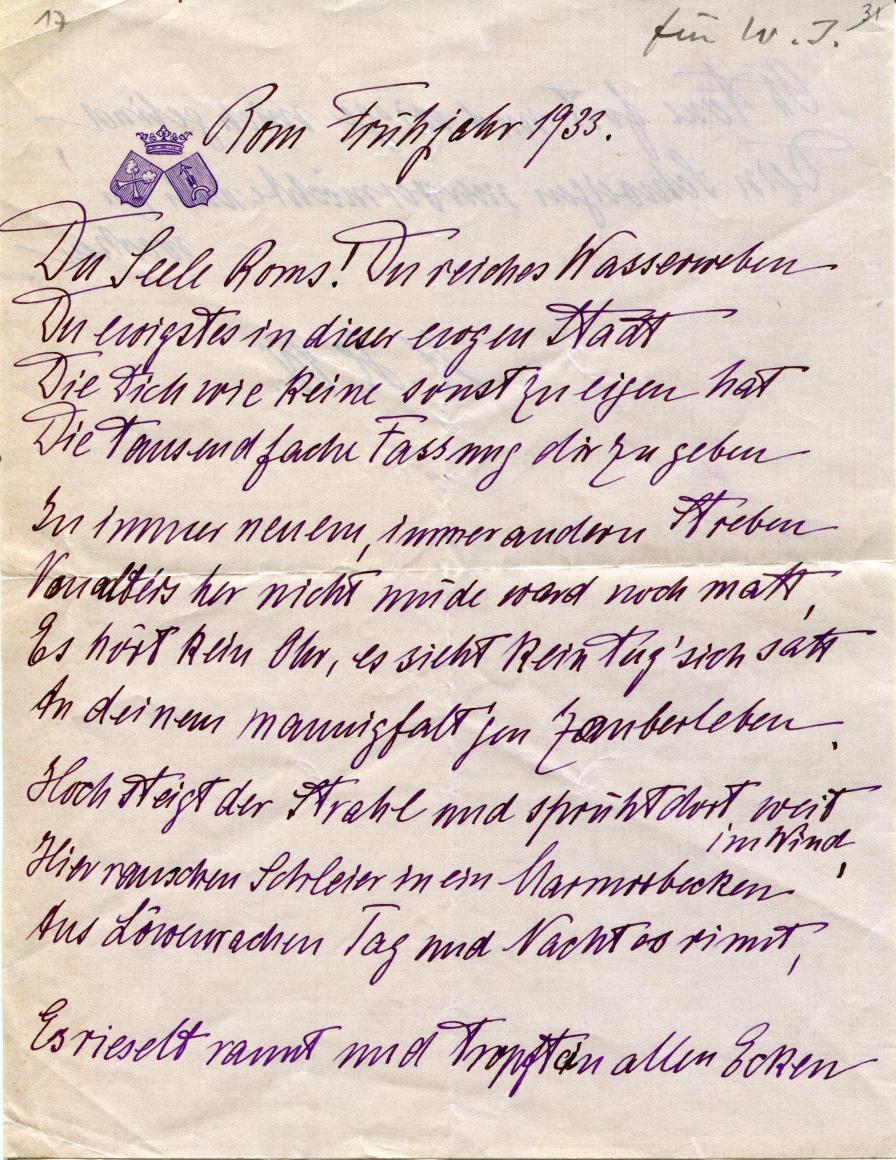 17
für W. J. 31
Rom Frühjahr 1933.
Du Seele Roms! Du reiches Wasserweben
Du ewigstes in dieser ewgen Stadt
Die Dich wie keine sonst zu eigen hat
Die tausendfache Fassung dir zu geben
In immer neuem, immer andern Streben
Von alters her nicht müde ward noch matt,
Es hört kein Ohr, es sieht kein Aug' sich satt
An deinem mannigfalt'gen Zauberleben.
Hoch steigt der Strahl und sprüht dort weit
im Wind,
Hier rauschen Schleier in ein Marmorbecken
Aus Löwenrachen Tag und Nacht es rinnt,
Es rieselt raunt und tropft in allen Ecken